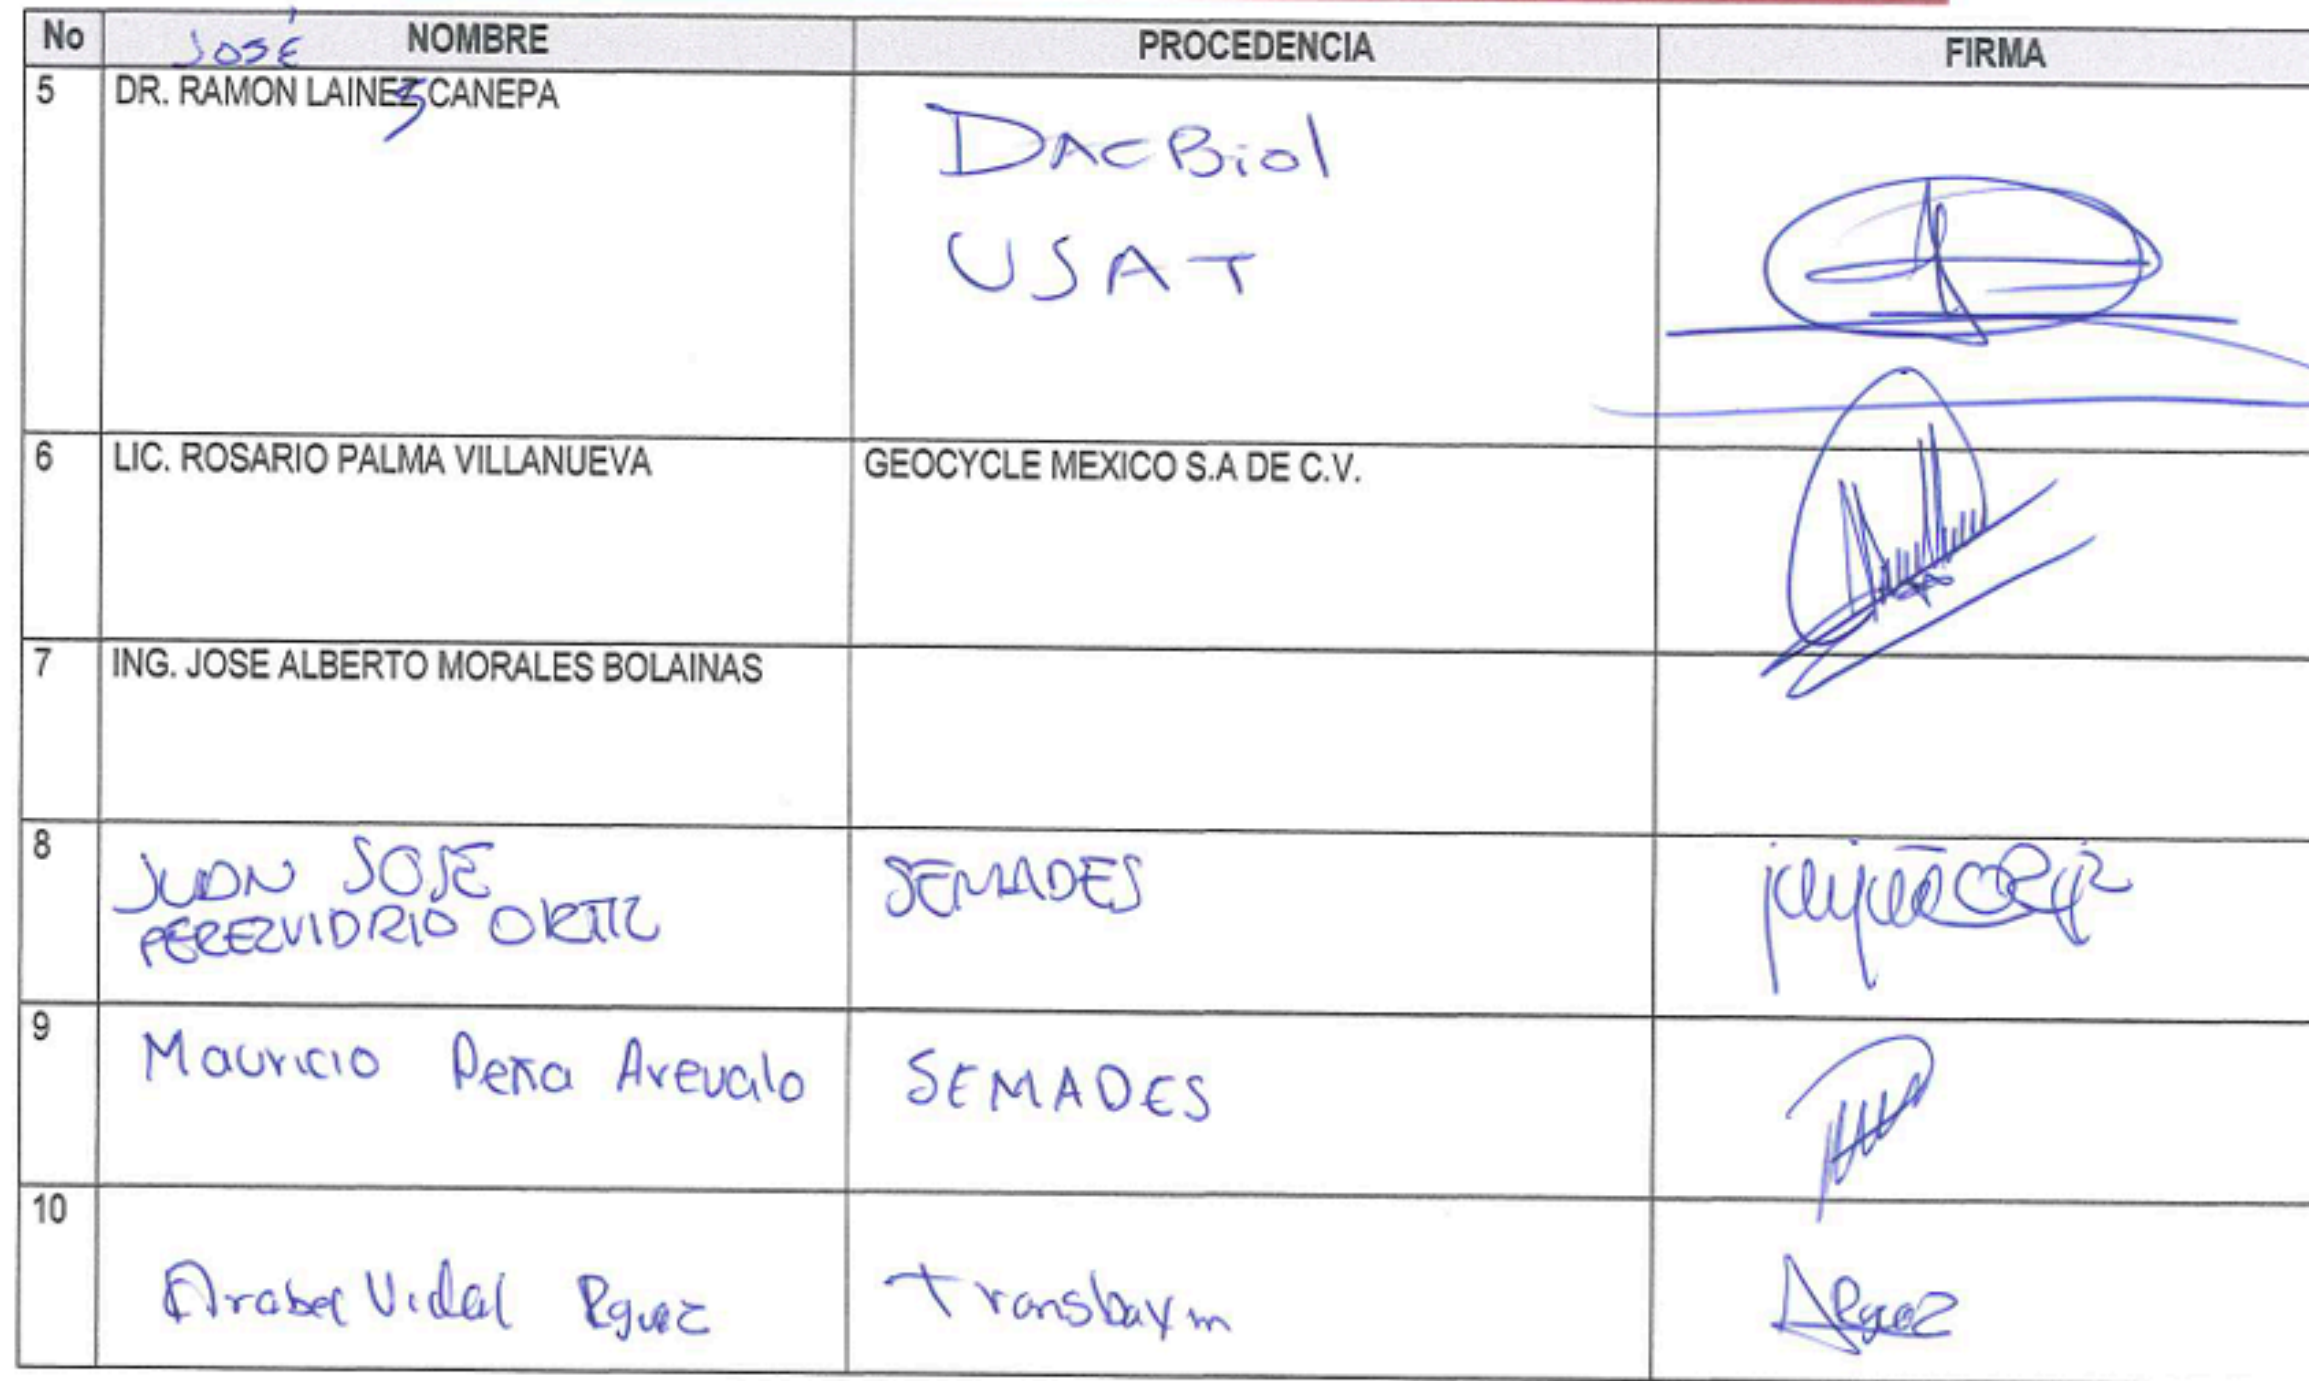 No NOMBRE PROCEDENCIA FIRMA
José
5 DR. RAMON LAINEZ CANEPA DACBiol
s
USAT
6 LIC. ROSARIO PALMA VILLANUEVA GEOCYCLE MEXICO S.A DE C.V.
7 ING. JOSE ALBERTO MORALES BOLAINAS
8 JUAN JOSE SEMADES
PEREZVIDRIO ORTIZ
9 Mauricio Peña Arevalo SEMADES
10
Arabel Vidal Rguez Transbaym